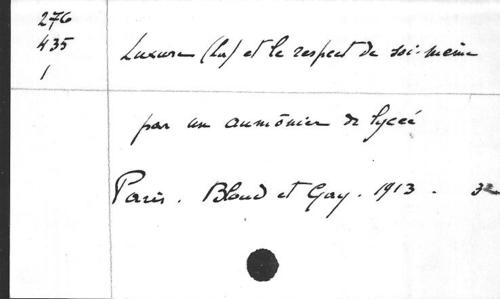 276
435
1
Luxure (La) et le respect de soi-même
par un aumônier de lycée
Paris. Bloud et Gay. 1913.